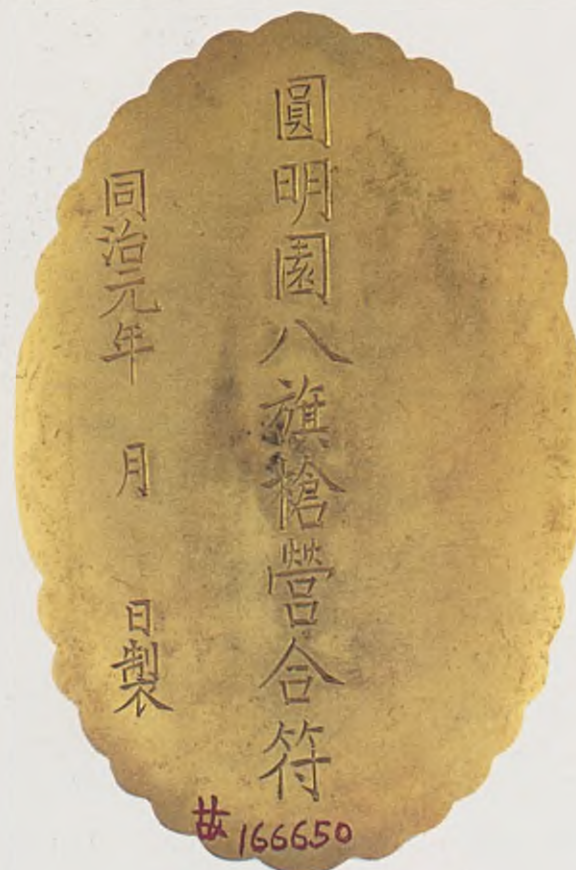 圓明園八旗槍營合符
同治元年 月 日製
故 166650